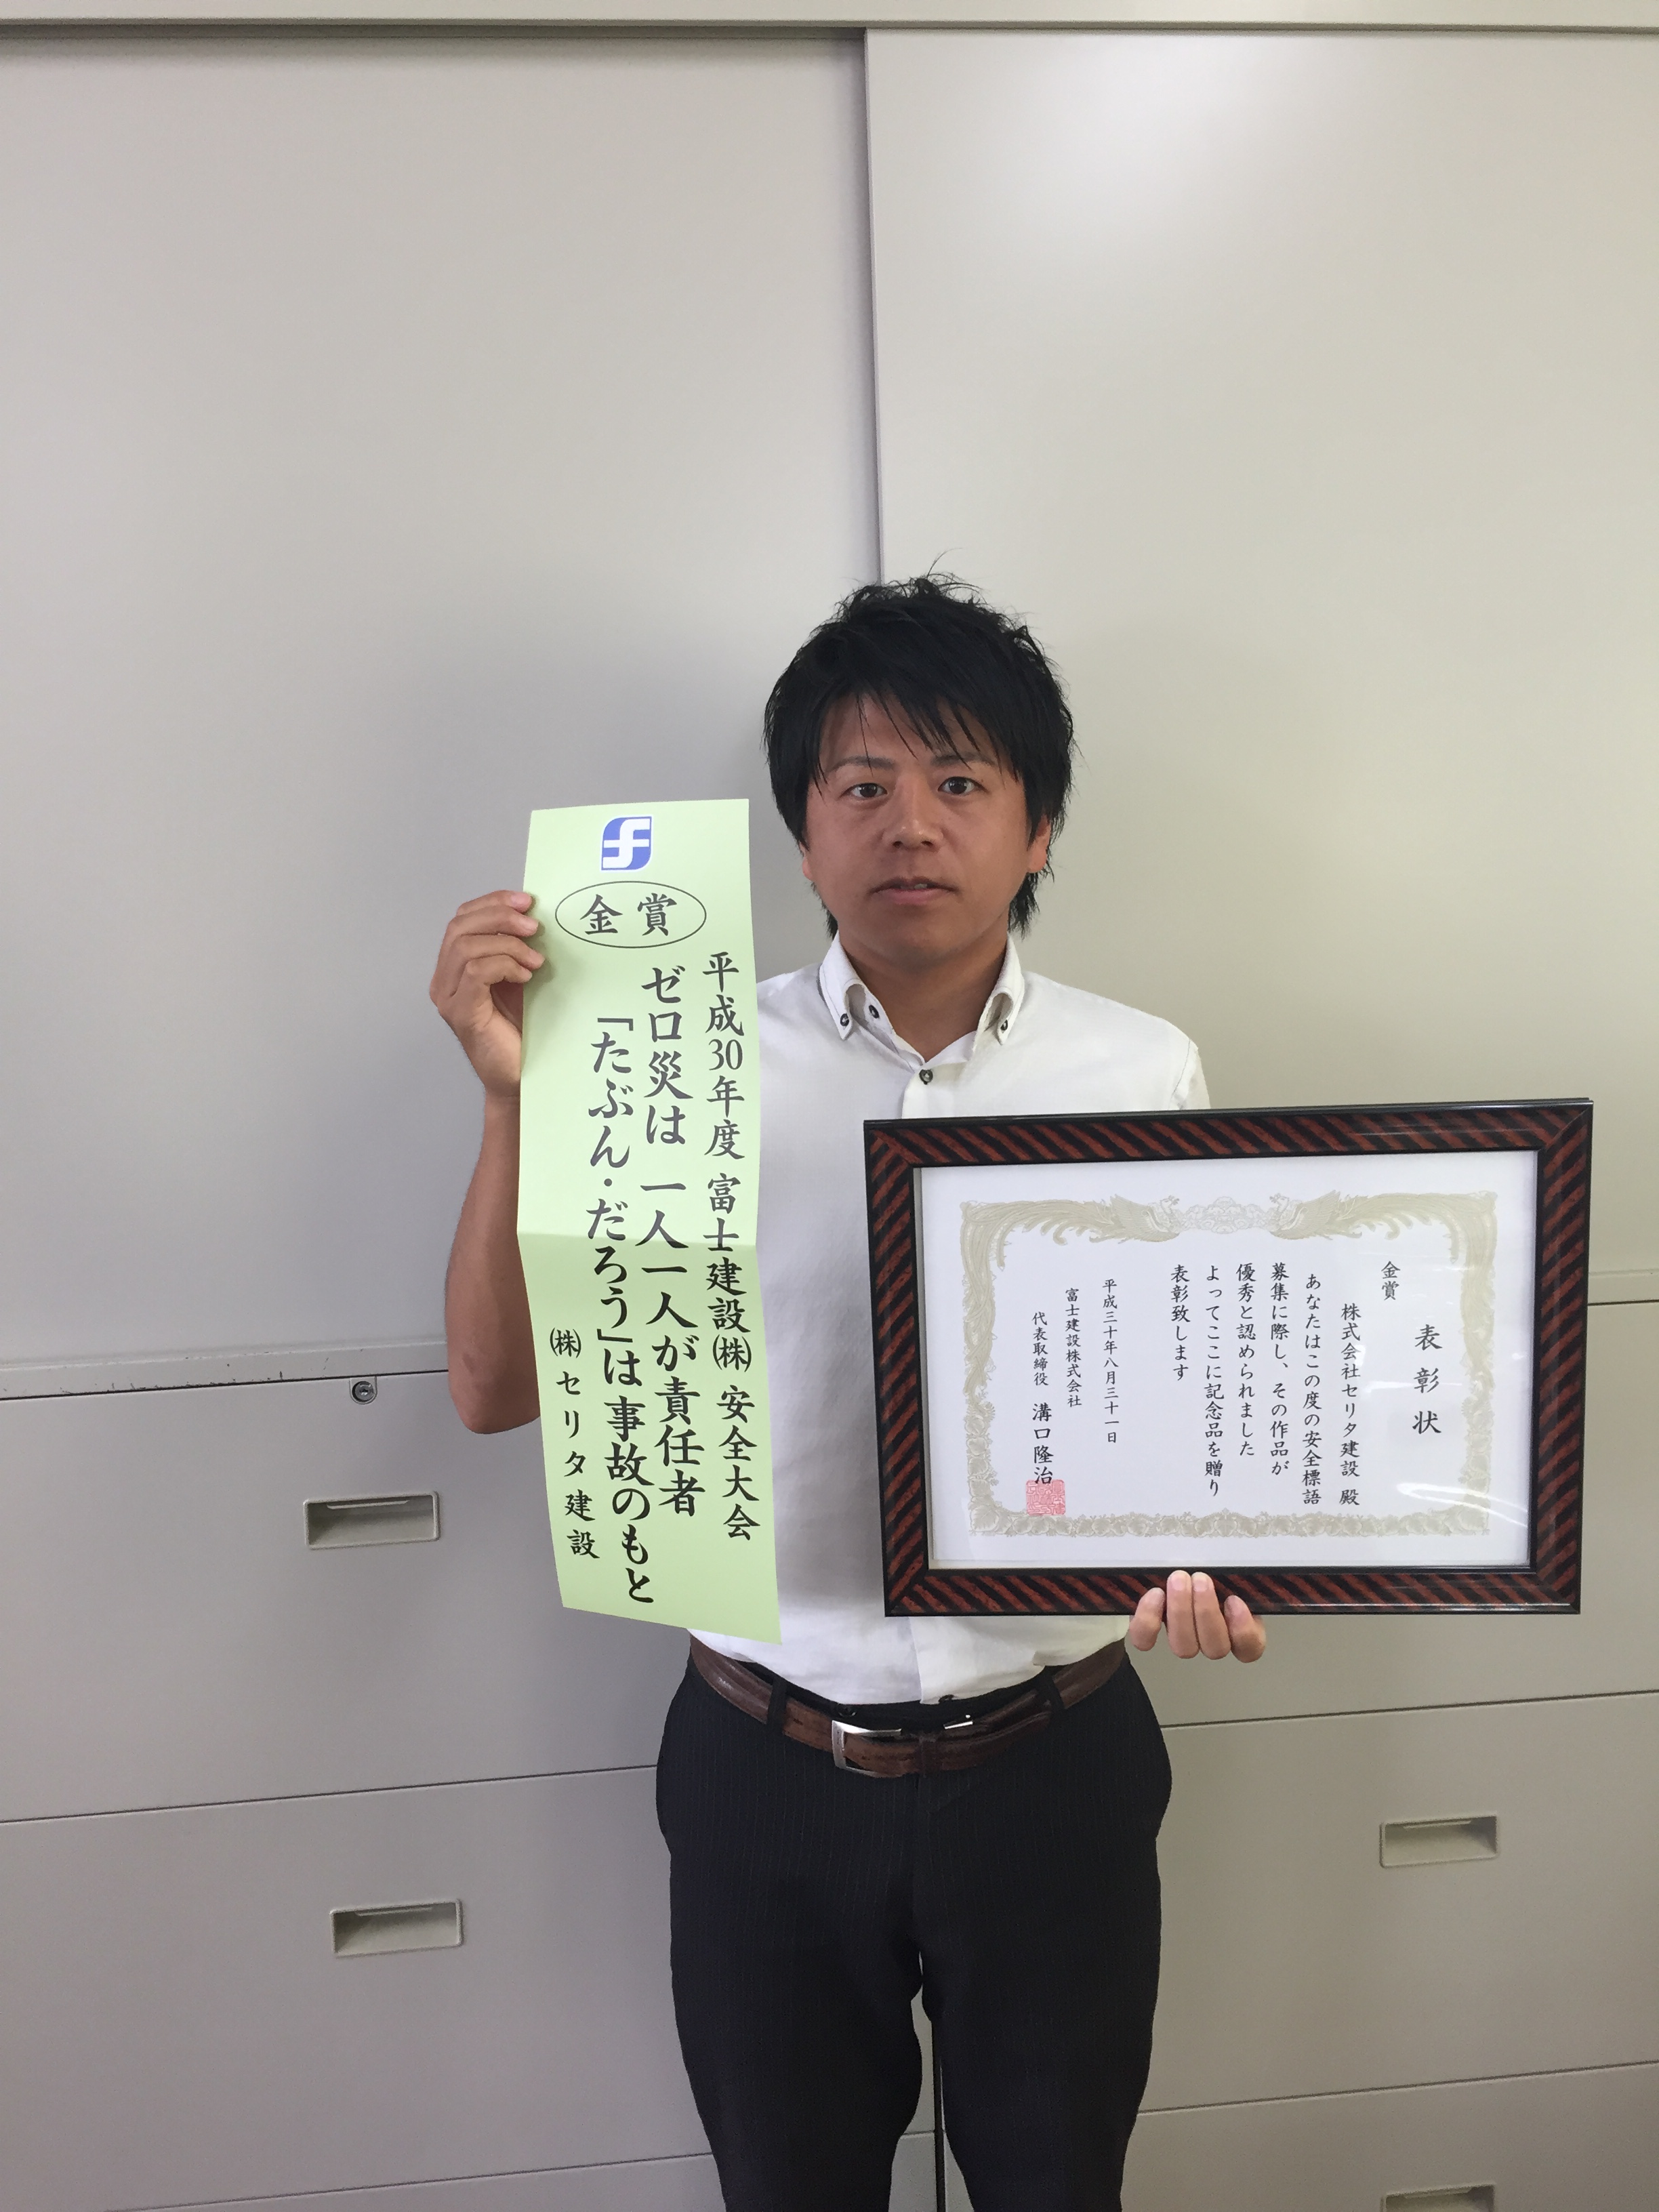 金賞
平成30年度 富士建設㈱ 安全大会
ゼロ災は 一人一人が責任者
「たぶん・だろう」は事故のもと
㈱セリタ建設
表彰状
金賞
株式会社セリタ建設 殿
あなたはこの度の安全標語
募集に際し、その作品が
優秀と認められました
よってここに記念品を贈り
表彰致します
平成三十年八月三十一日
富士建設株式会社
代表取締役 溝口隆治